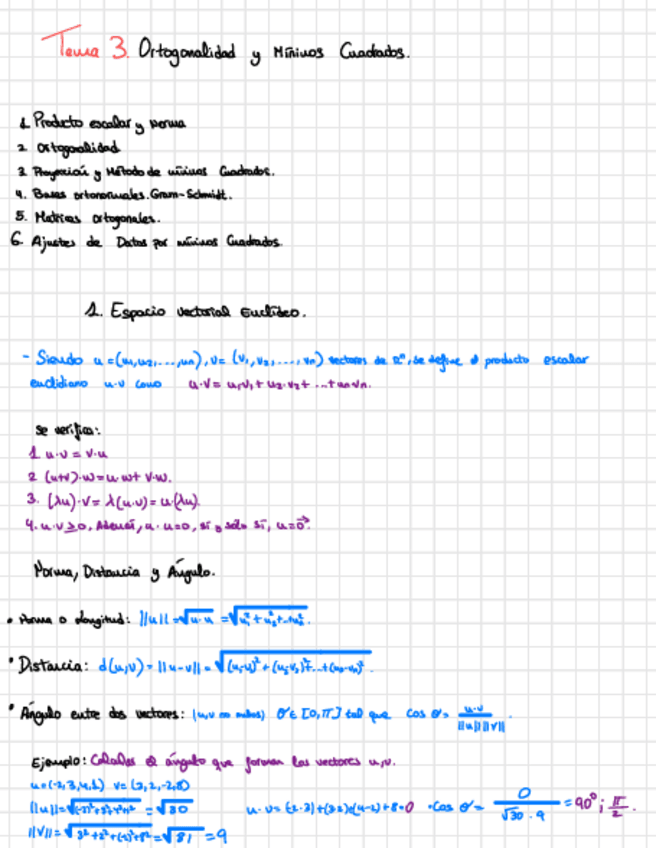 Tema 3. Ortogonalidad y Mínimos Cuadrados.
1. Producto escalar y Norma
2. Ortogonalidad
3. Proyección y Método de mínimos Cuadrados.
4. Bases ortonormales. Gram-Schmidt.
5. Matrices ortogonales.
6. Ajustes de Datos por mínimos Cuadrados.
1. Espacio vectorial Euclídeo.
- Siendo u=(u₁,u₂,...,uₙ), v=(v₁,v₂,...,vₙ) vectores de ℝⁿ, se define el producto escalar
euclidiano u·v como u·v = u₁v₁ + u₂·v₂ + ...+ uₙvₙ.
Se verifica:
1. u·v = v·u
2. (u+v)·w = u·w + v·w.
3. (λu)·v = λ(u·v) = u·(λu).
4. u·v ≥ 0, Además, u·u=0, sí y sólo sí, u=0⃗.
Norma, Distancia y Ángulo.
• Norma o longitud: ||u|| = √u·u = √u₁² + u₂² + ...uₙ².
• Distancia: d(u,v) = ||u-v|| = √(u₁-v₁)² + (u₂-v₂)² + ... + (uₙ-vₙ)².
• Ángulo entre dos vectores: (u,v no nulos) θ ∈ [0,π] tal que cos θ = u·v / ||u|| ||v||.
Ejemplo: Calcular el ángulo que forman los vectores u,v.
v=(3,2,-2,8)
= √30
= √81 = 9
cos θ = 0 / √30 · 9 = 90° ; π/2.